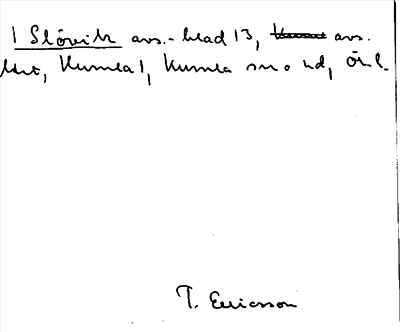 1 Slövik avs.-blad 13, avs.
Kumla 1, Kumla sn o hd,
T. Ericsson